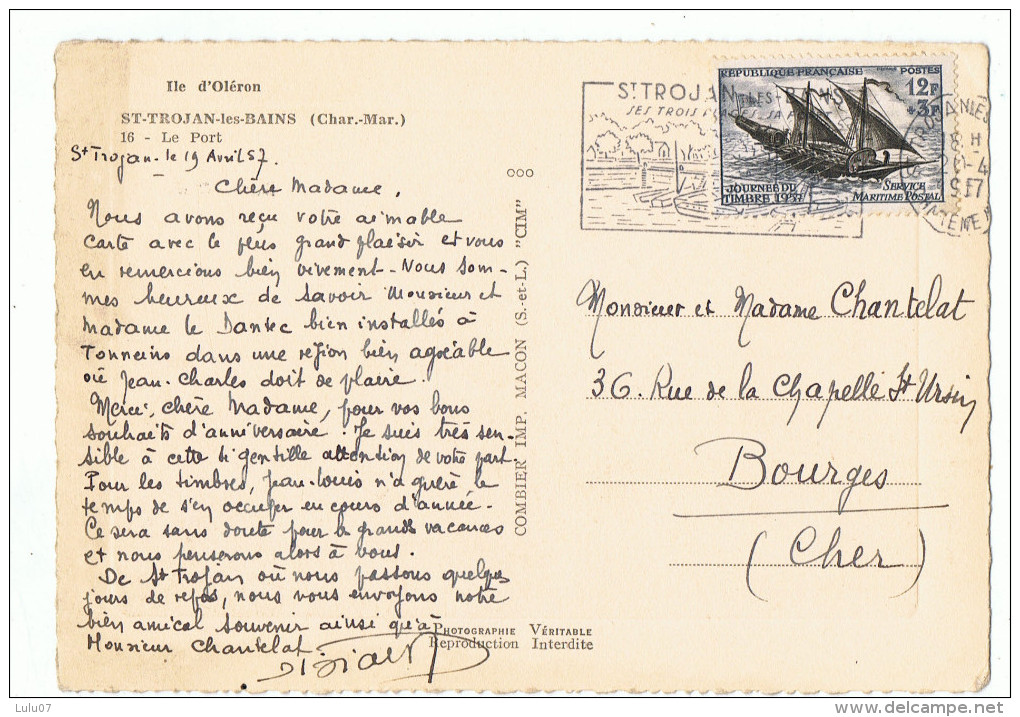 Ile d'Oléron
ST-TROJAN-les-BAINS (Char.-Mar.)
16 - Le Port
St Trojan - le 19 Avril 57.
Chère Madame,
Nous avons reçu votre aimable
carte avec le plus grand plaisir et vous
en remercions bien vivement - Nous som-
mes heureux de savoir Monsieur et
Madame le Dantec bien installés à
Tonneins dans une région bien agréable
où Jean-Charles doit se plaire.
Merci, chère Madame, pour vos bons
souhaits d'anniversaire. Je suis très sen-
sible à cette si gentille attention de votre part.
Pour les timbres, Jean-Louis n'a guère le
temps de s'en occuper en cours d'année.
Ce sera sans doute pour les grandes vacances
et nous penserons alors à vous.
De St Trojan où nous passons quelques
jours de repos, nous vous envoyons notre
bien amical souvenir ainsi qu'à
Monsieur Chantelat
COMBIER IMP. MACON (S.-et-L.) "CIM"
PHOTOGRAPHIE VÉRITABLE
Reproduction Interdite
ST TROJAN-LES-BAINS
SES TROIS PLAGES, SA
RÉPUBLIQUE FRANÇAISE POSTES
12F
+3F
JOURNÉE DU
TIMBRE 1957
SERVICE
MARITIME POSTAL
Monsieur et Madame Chantelat
36. Rue de la Chapelle St Ursin
Bourges
(Cher)
Lulu07
www.delcampe.net